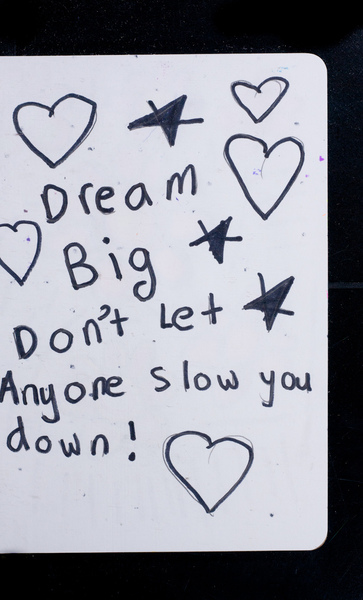 Dream
Big
Don't Let
Anyone slow you
down!